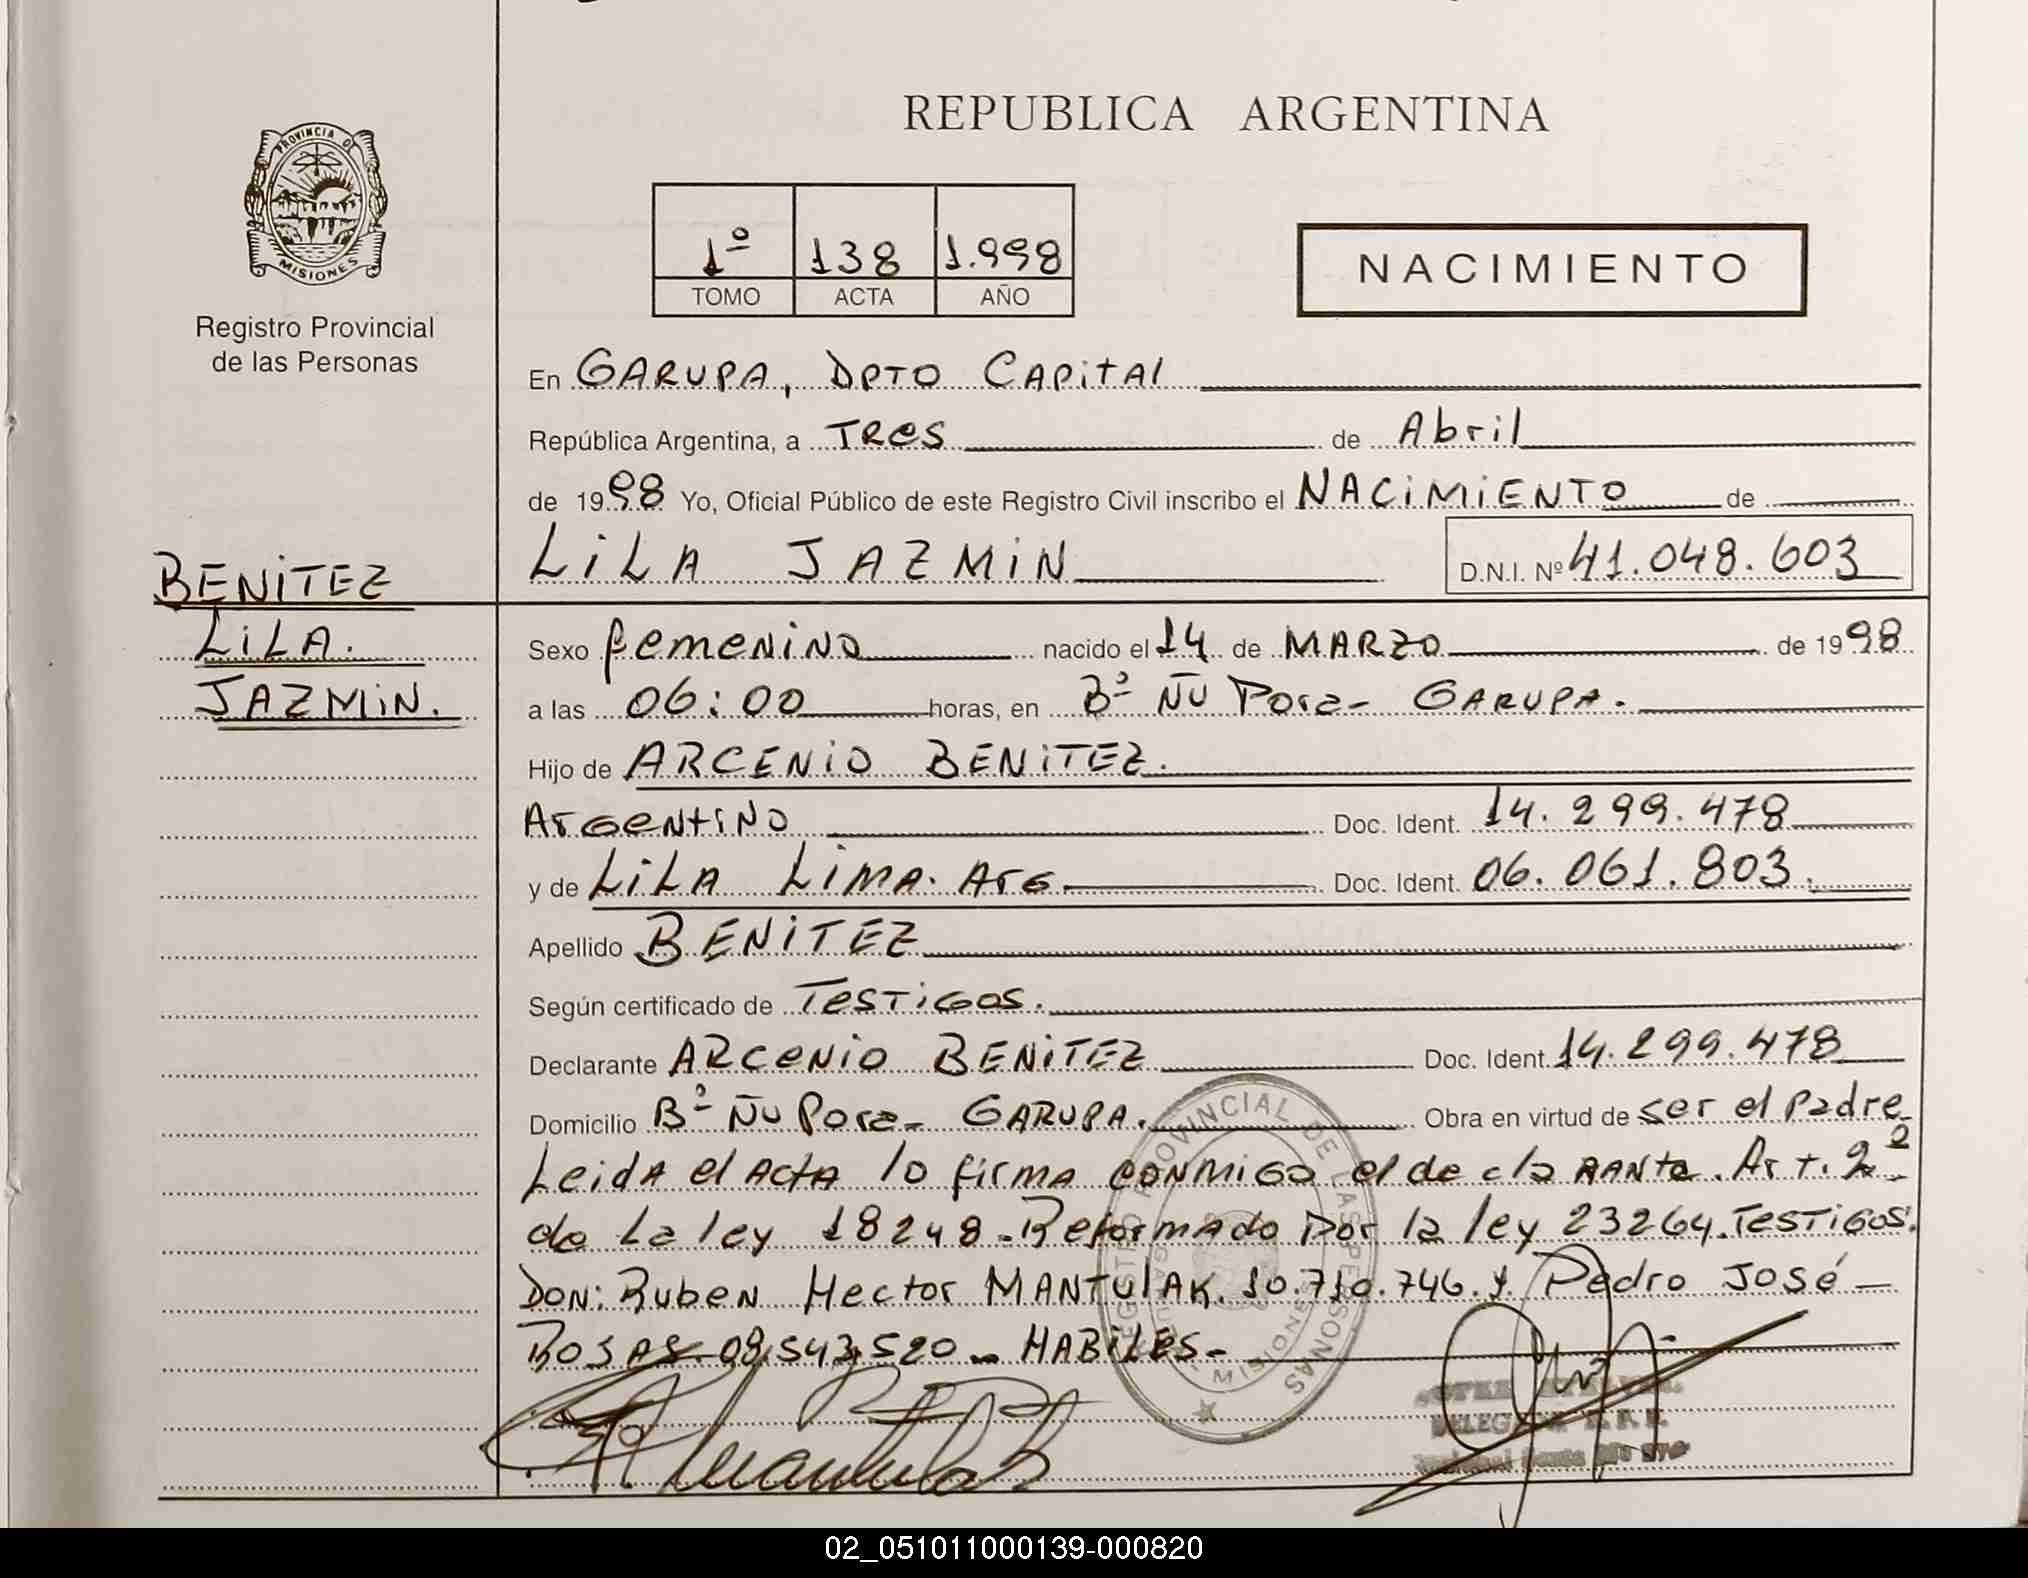 REPUBLICA ARGENTINA
PROVINCIA D
MISIONES
Registro Provincial
de las Personas
1º 138 1.998
TOMO ACTA AÑO
NACIMIENTO
En GARUPA, DPTO CAPiTAl
República Argentina, a TRes de Abril
de 1998 Yo, Oficial Público de este Registro Civil inscribo el NACiMiENTO de
LiLA JAZMiN D.N.I. Nº 41.048.603
BENiTEZ
LiLA.
JAZMiN.
Sexo femeNiNo nacido el 14 de MARZO de 1998
a las 06:00 horas, en Bº ÑU Pora- GARUPA.
Hijo de ARCENiO BENiTEZ.
ArgentiNo Doc. Ident. 14.299.478
y de LiLA LiMA. Arg Doc. Ident. 06.061.803.
Apellido BENiTEZ
Según certificado de TesTiGos.
Declarante ARCeNio BENiTEZ Doc. Ident. 14.299.478
Domicilio Bº Ñu Pora- GARUPA. Obra en virtud de ser el Padre
Leida el Acta lo firma conmigo el declarante. Art. 2º
de La ley 18248-Reformado por la ley 23264.TesTiGos.
DoN: Ruben Hector MANTUlAK. 10.710.746.y Pedro José-
ROSAS. 08,543,520- HABiLES-
REGISTRO PROVINCIAL DE LAS PERSONAS
MISIONES
02_051011000139-000820